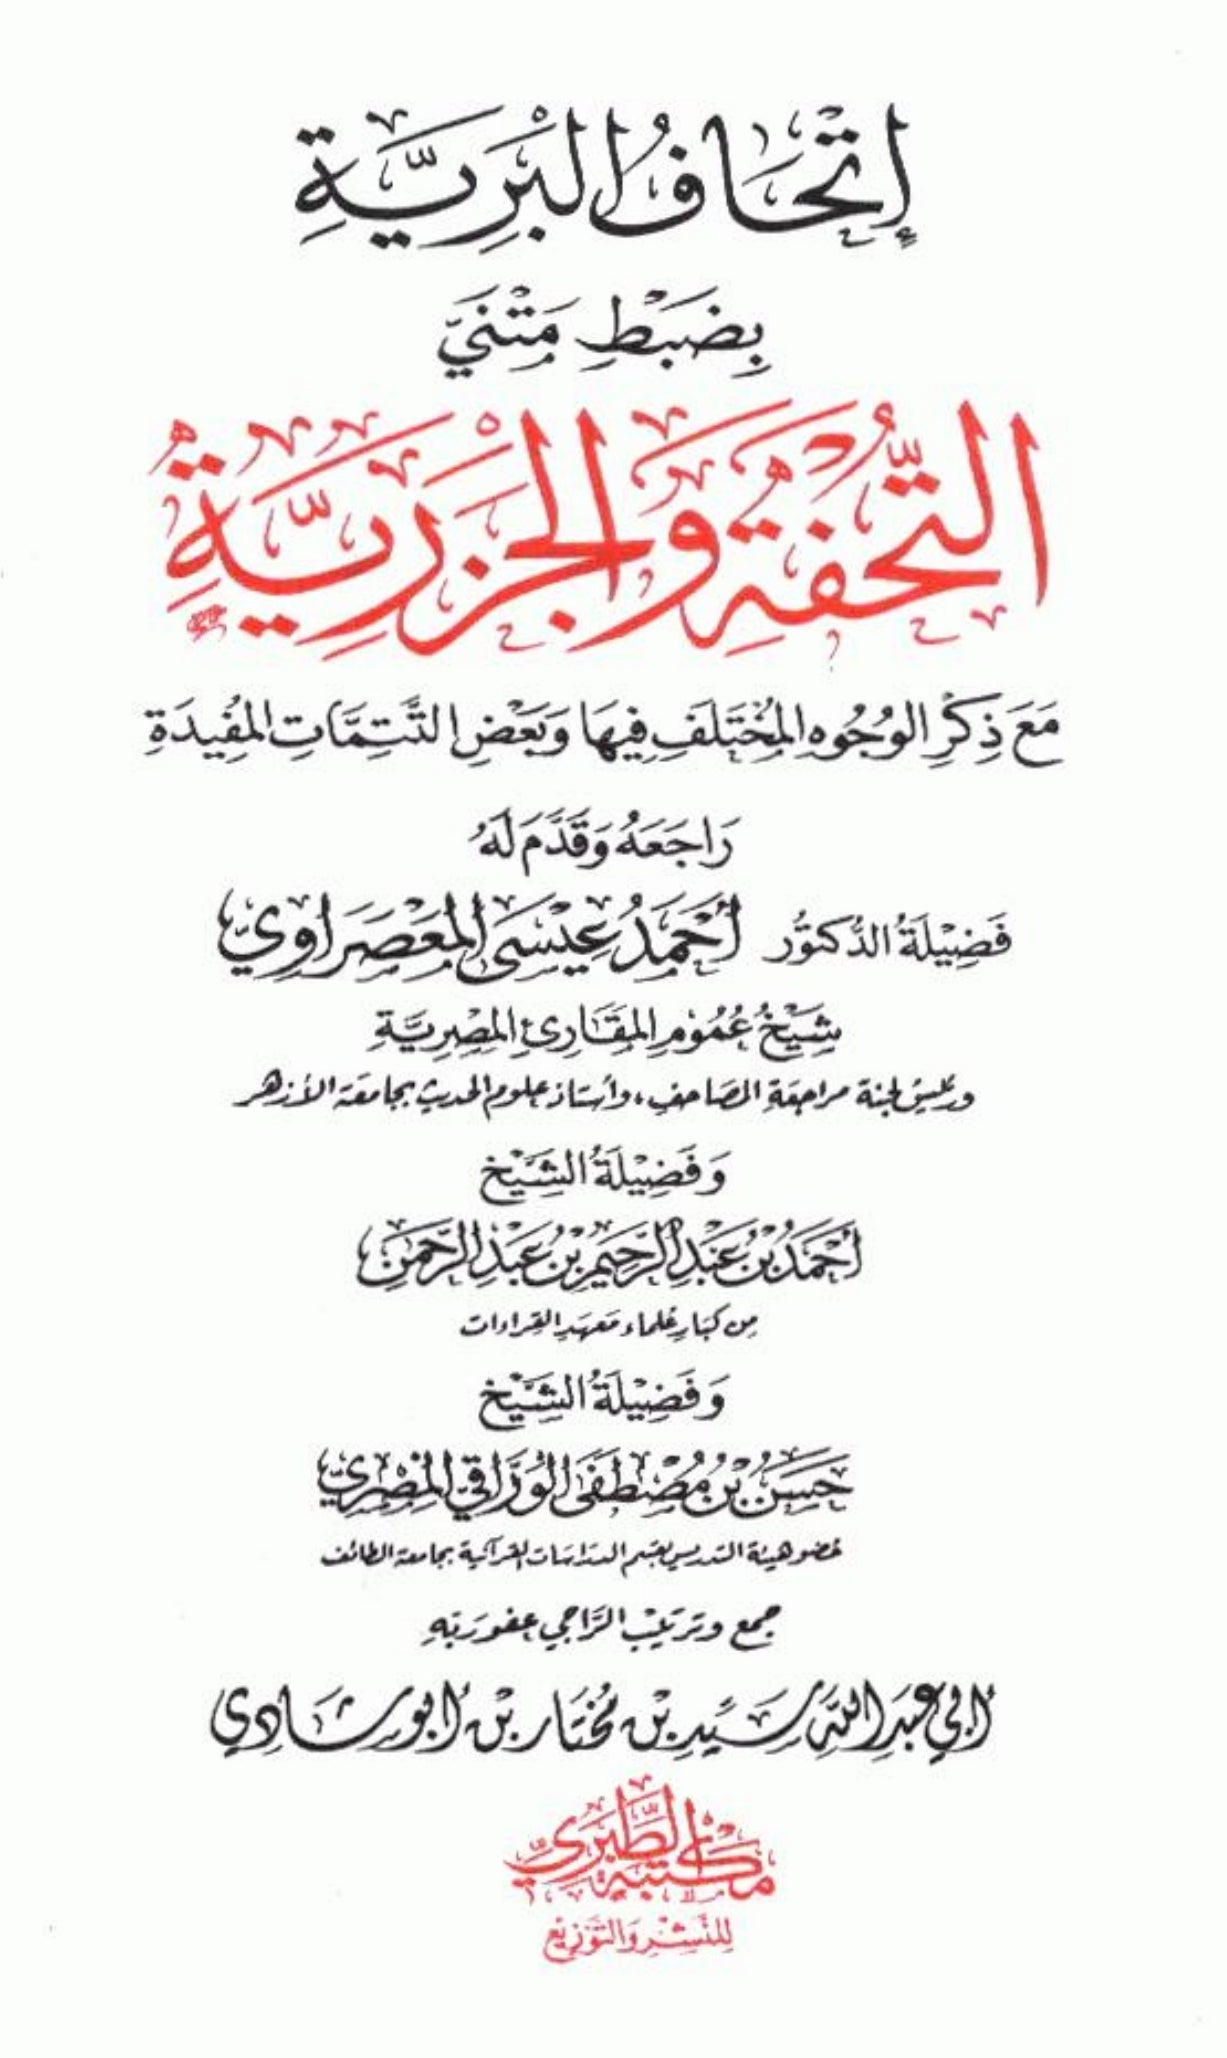 إِتْحَافُ الْبَرِيَّةِ
بِضَبْطِ مَتْنَيِّ
التُّحْفَةِ وَالْجَزَرِيَّةِ
مَعَ ذِكْرِ الوُجُوهِ المُخْتَلَفِ فِيهَا وَبَعْضِ التَّتِمَّاتِ المُفِيدَةِ
رَاجَعَهُ وَقَدَّمَ لَهُ
فَضِيْلَةُ الدُّكتُور أَحْمَدُ عِيْسَى المَعْصَرَاوِيّ
شَيْخُ عُمُوْمِ المَقَارِئِ المِصْرِيَّةِ
ورئيس لجنة مراجعة المصاحف، وأستاذ علوم الحديث بجامعة الأزهر
وَفَضِيْلَةُ الشَّيْخ
أَحْمَدُ بْنُ عَبْدِ الرَّحِيْمِ بْنُ عَبْدِ الرَّحْمَنِ
مِن كبَارِ عُلماء مَعهَدِ القِراءات
وَفَضِيْلَةُ الشَّيْخ
حَسَنُ بْنُ مُصْطَفَى الوَرَّاقِيّ المِصْرِيّ
عُضو هيئة التدريس بقسم الدراسات القرآنية بجامعة الطائف
جمع وترتيب الرَّاجي عفو رَبّهِ
أَبي عَبدِ اللَّهِ سَيِّدِ بْن مُخْتَار بْن أَبو شَادي
مكتبة الطَّبَرِيّ
لِلنَّشْرِ وَالتَّوْزِيْع